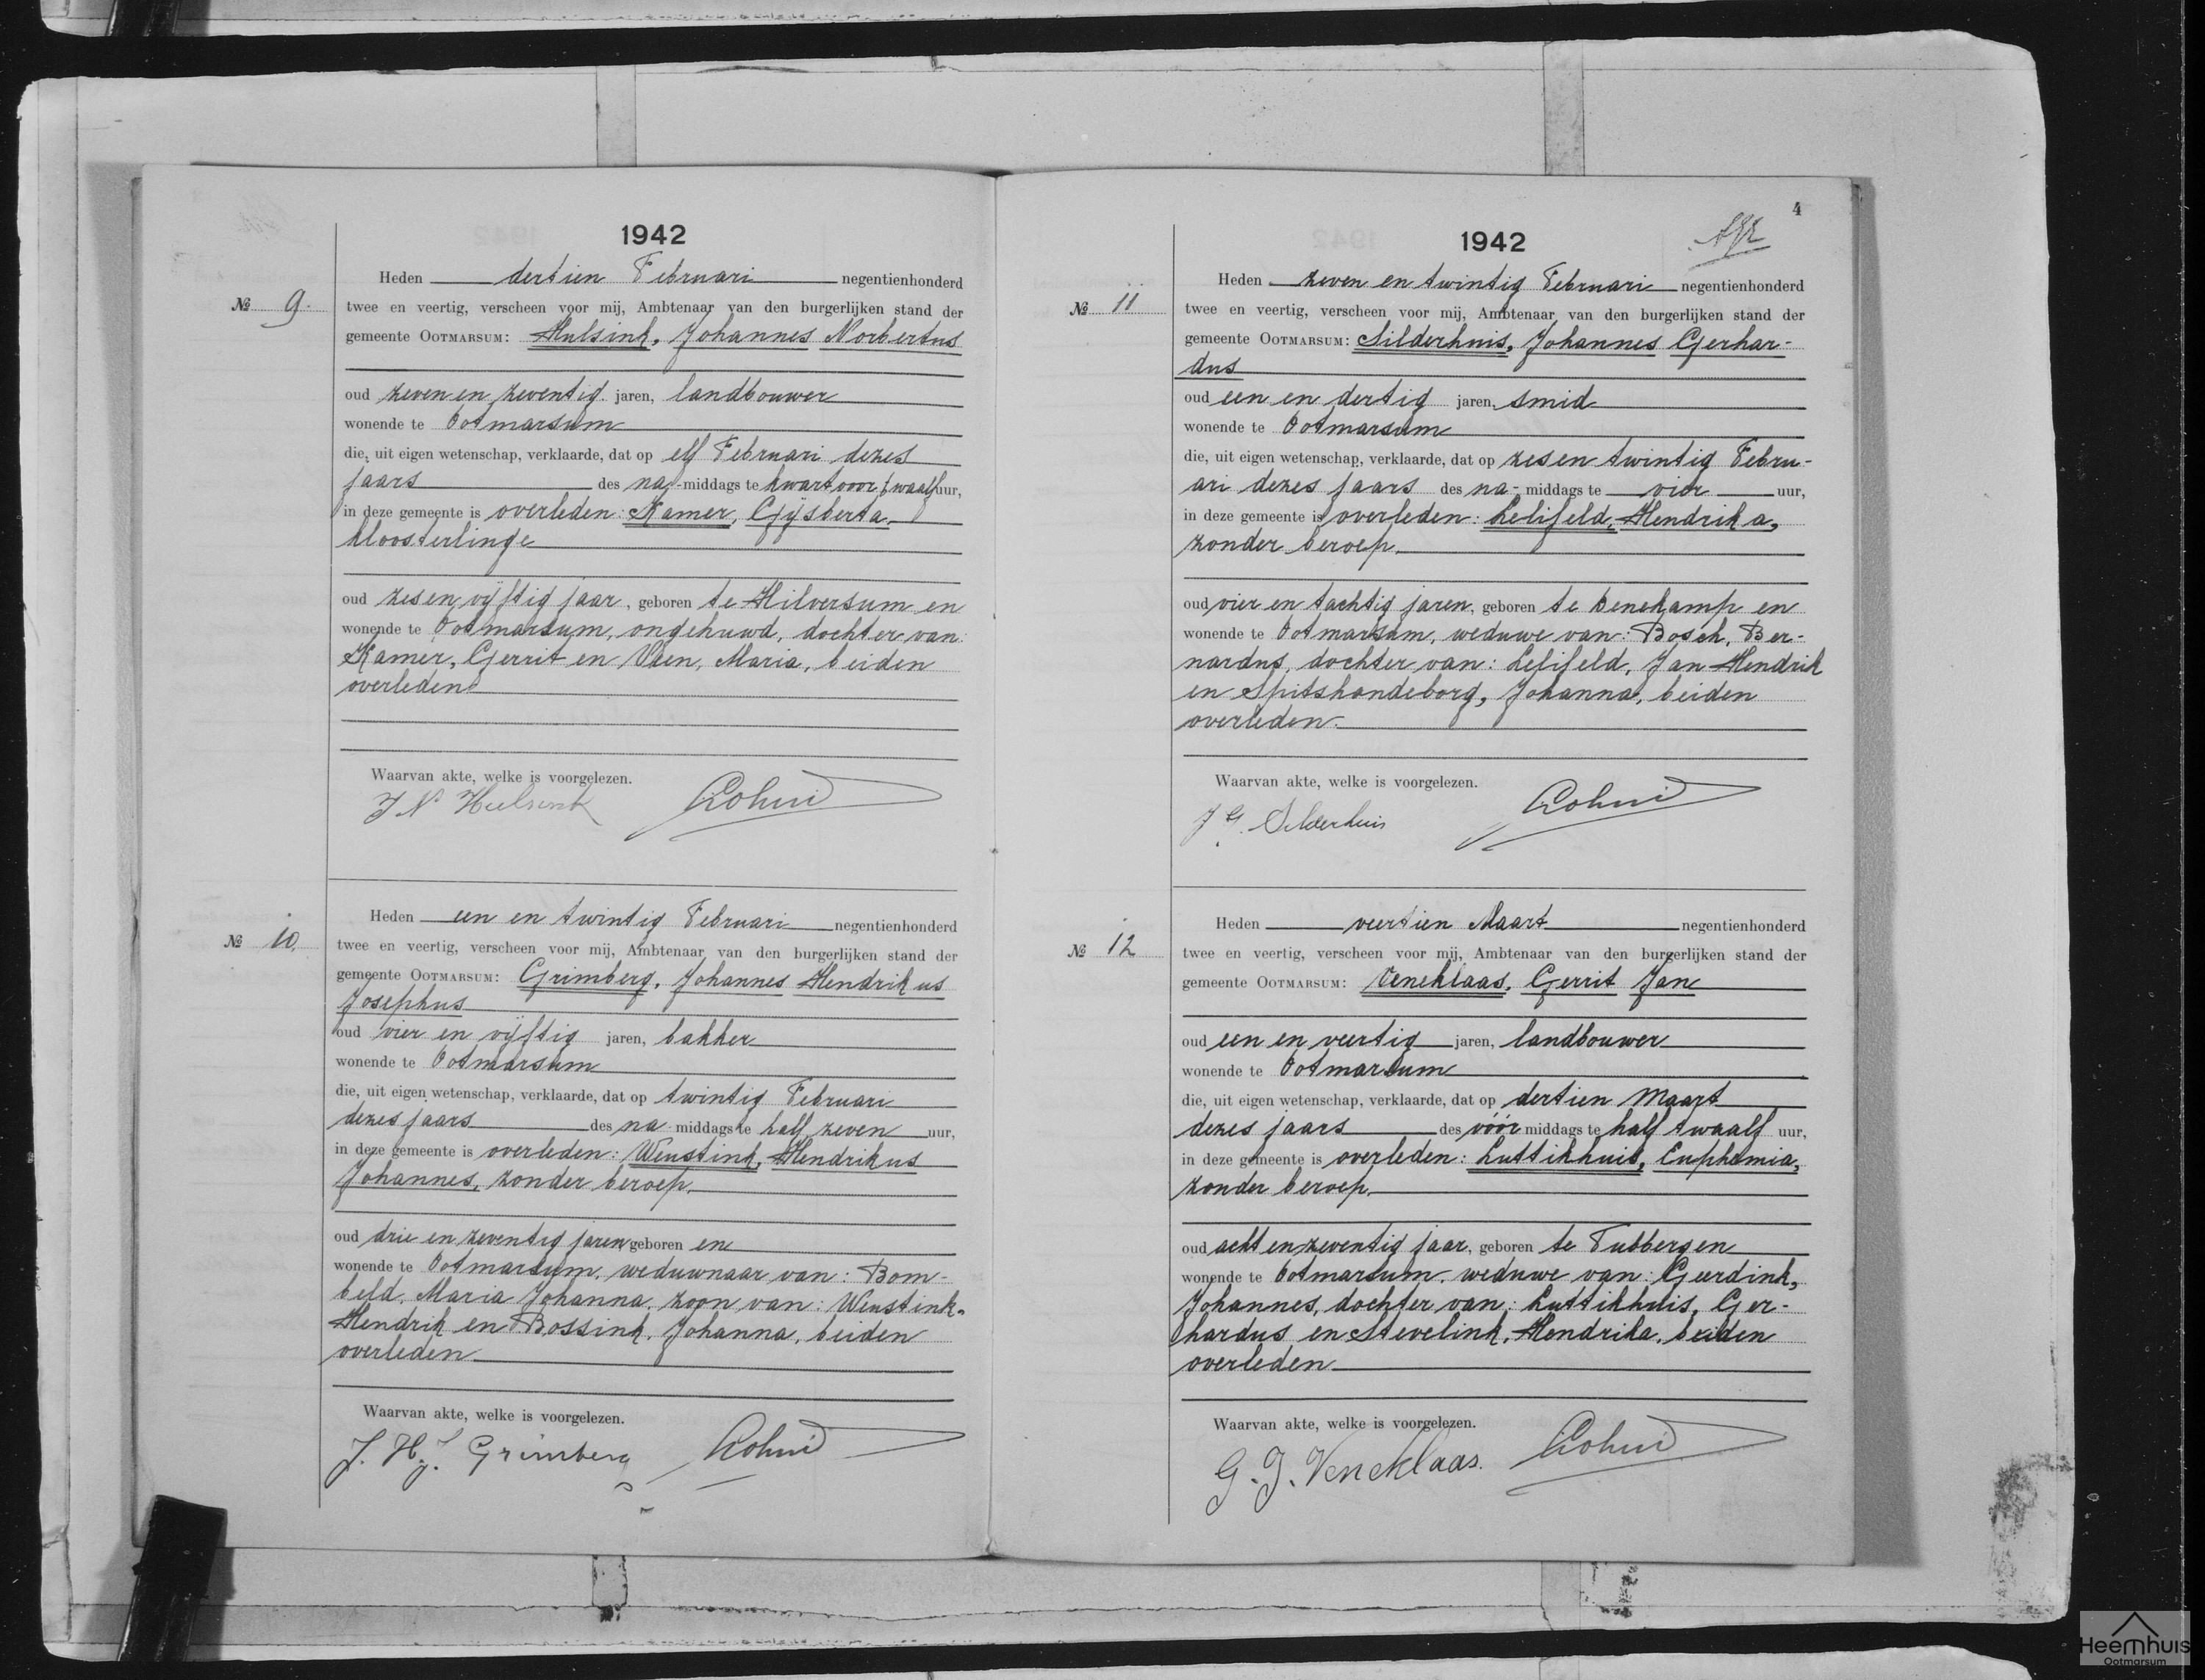 1942
Heden dertien Februari negentienhonderd
№ 9.
twee en veertig, verscheen voor mij, Ambtenaar van den burgerlijken stand der
gemeente OOTMARSUM: Hulsink, Johannes Norbertus
oud zeven en zeventig jaren, landbouwer
wonende te Ootmarsum
die, uit eigen wetenschap, verklaarde, dat op elf Februari dezes
jaars des na-middags te kwart voor twaalf uur,
in deze gemeente is overleden: Kamer, Gijsberta,
kloosterlinge
oud zes en vijftig jaar, geboren te Hilversum en
wonende te Ootmarsum, ongehuwd, dochter van:
Kamer, Gerrit en Veen, Maria, beiden
overleden
Waarvan akte, welke is voorgelezen.
J N Hulsink
Heden een en twintig Februari negentienhonderd
№ 10.
twee en veertig, verscheen voor mij, Ambtenaar van den burgerlijken stand der
gemeente OOTMARSUM: Grimberg, Johannes Hendrikus
Josephus
oud vier en vijftig jaren, bakker
wonende te Ootmarsum
die, uit eigen wetenschap, verklaarde, dat op twintig Februari
dezes jaars des na middags te half zeven uur,
in deze gemeente is overleden: Weustink, Hendrikus
Johannes, zonder beroep,
oud drie en zeventig jaren geboren en
wonende te Ootmarsum, weduwnaar van: Bom-
beld, Maria Johanna, zoon van: Weustink,
Hendrik en Bossink, Johanna, beiden
overleden
Waarvan akte, welke is voorgelezen.
J. H. J. Grimberg
4
1942
Heden zeven en twintig Februari negentienhonderd
№ 11
twee en veertig, verscheen voor mij, Ambtenaar van den burgerlijken stand der
gemeente OOTMARSUM: Silderhuis, Johannes Gerhar-
dus
oud een en dertig jaren, smid
wonende te Ootmarsum
die, uit eigen wetenschap, verklaarde, dat op zes en twintig Febru-
ari dezes jaars des na-middags te vier uur,
in deze gemeente is overleden: Lelifeld, Hendrika,
zonder beroep,
oud vier en tachtig jaren, geboren te Denekamp en
wonende te Ootmarsum, weduwe van: Bosch, Ber-
nardus, dochter van: Lelifeld, Jan Hendrik
en Spitshandeborg, Johanna, beiden
overleden.
Waarvan akte, welke is voorgelezen.
J G. Silderhuis
Heden veertien Maart negentienhonderd
№ 12
twee en veertig, verscheen voor mij, Ambtenaar van den burgerlijken stand der
gemeente OOTMARSUM: Veneklaas, Gerrit Jan
oud een en veertig jaren, landbouwer
wonende te Ootmarsum
die, uit eigen wetenschap, verklaarde, dat op dertien Maart
dezes jaars des vóór middags te half twaalf uur,
in deze gemeente is overleden: Luttikhuis, Euphemia,
zonder beroep,
oud acht en zeventig jaar, geboren te Tubbergen
wonende te Ootmarsum, weduwe van: Geerdink,
Johannes, dochter van: Luttikhuis, Ger-
hardus en Stevelink, Hendrika, beiden
overleden
Waarvan akte, welke is voorgelezen.
G. J. Veneklaas.
Heemhuis
Ootmarsum